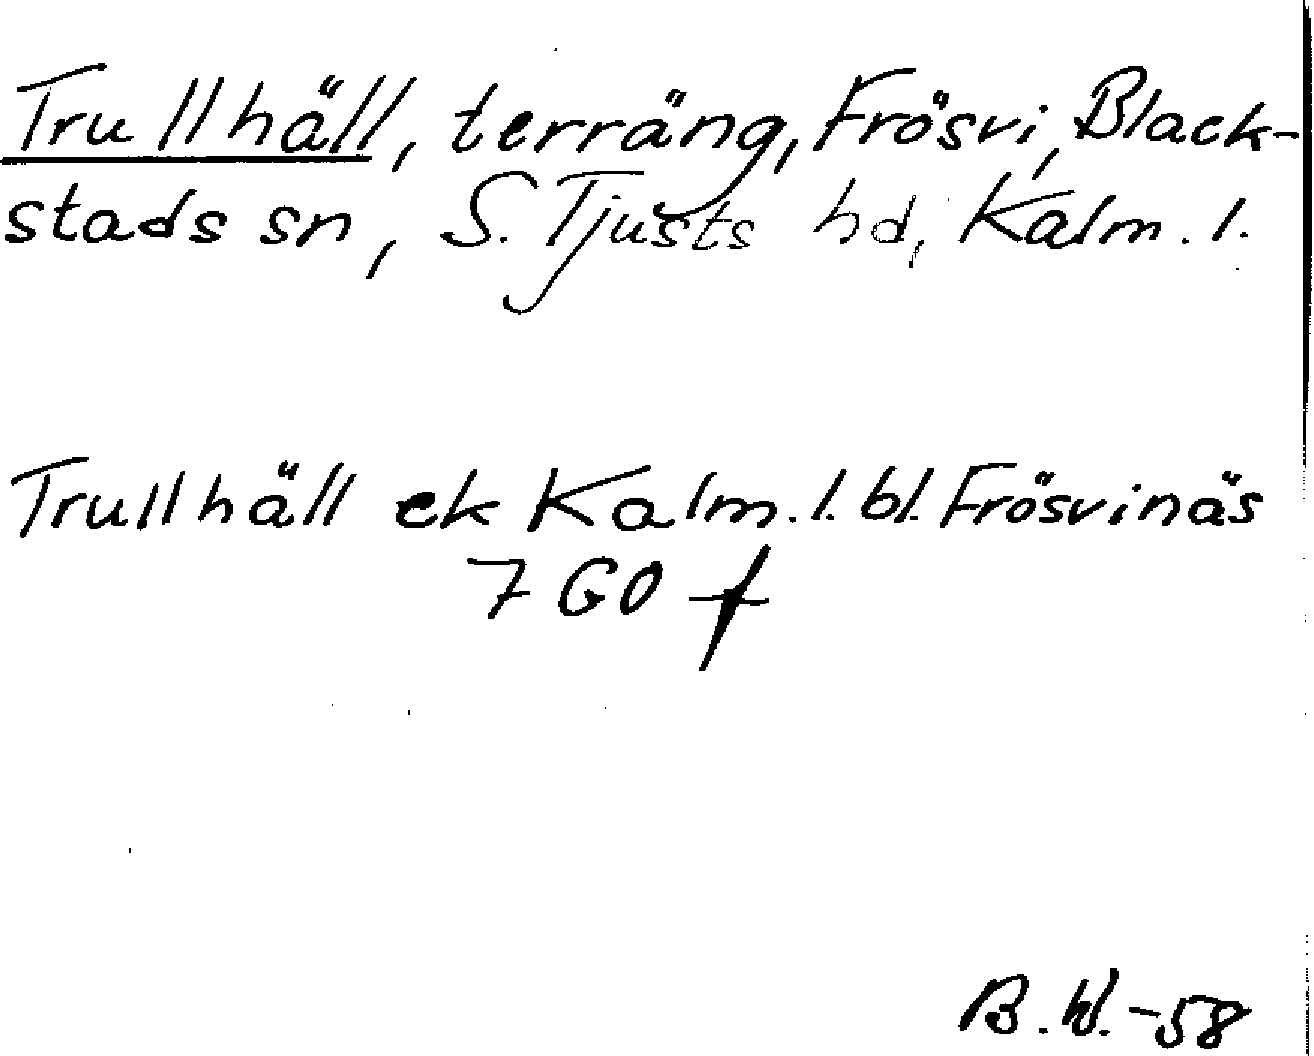 Trullhäll, terräng, Frösvi, Black-
stads sn, S. Tjusts hd, Kalm. l.
Trullhäll ek Kalm. l. bl. Frösvinäs
7 GO f
B. W. -58